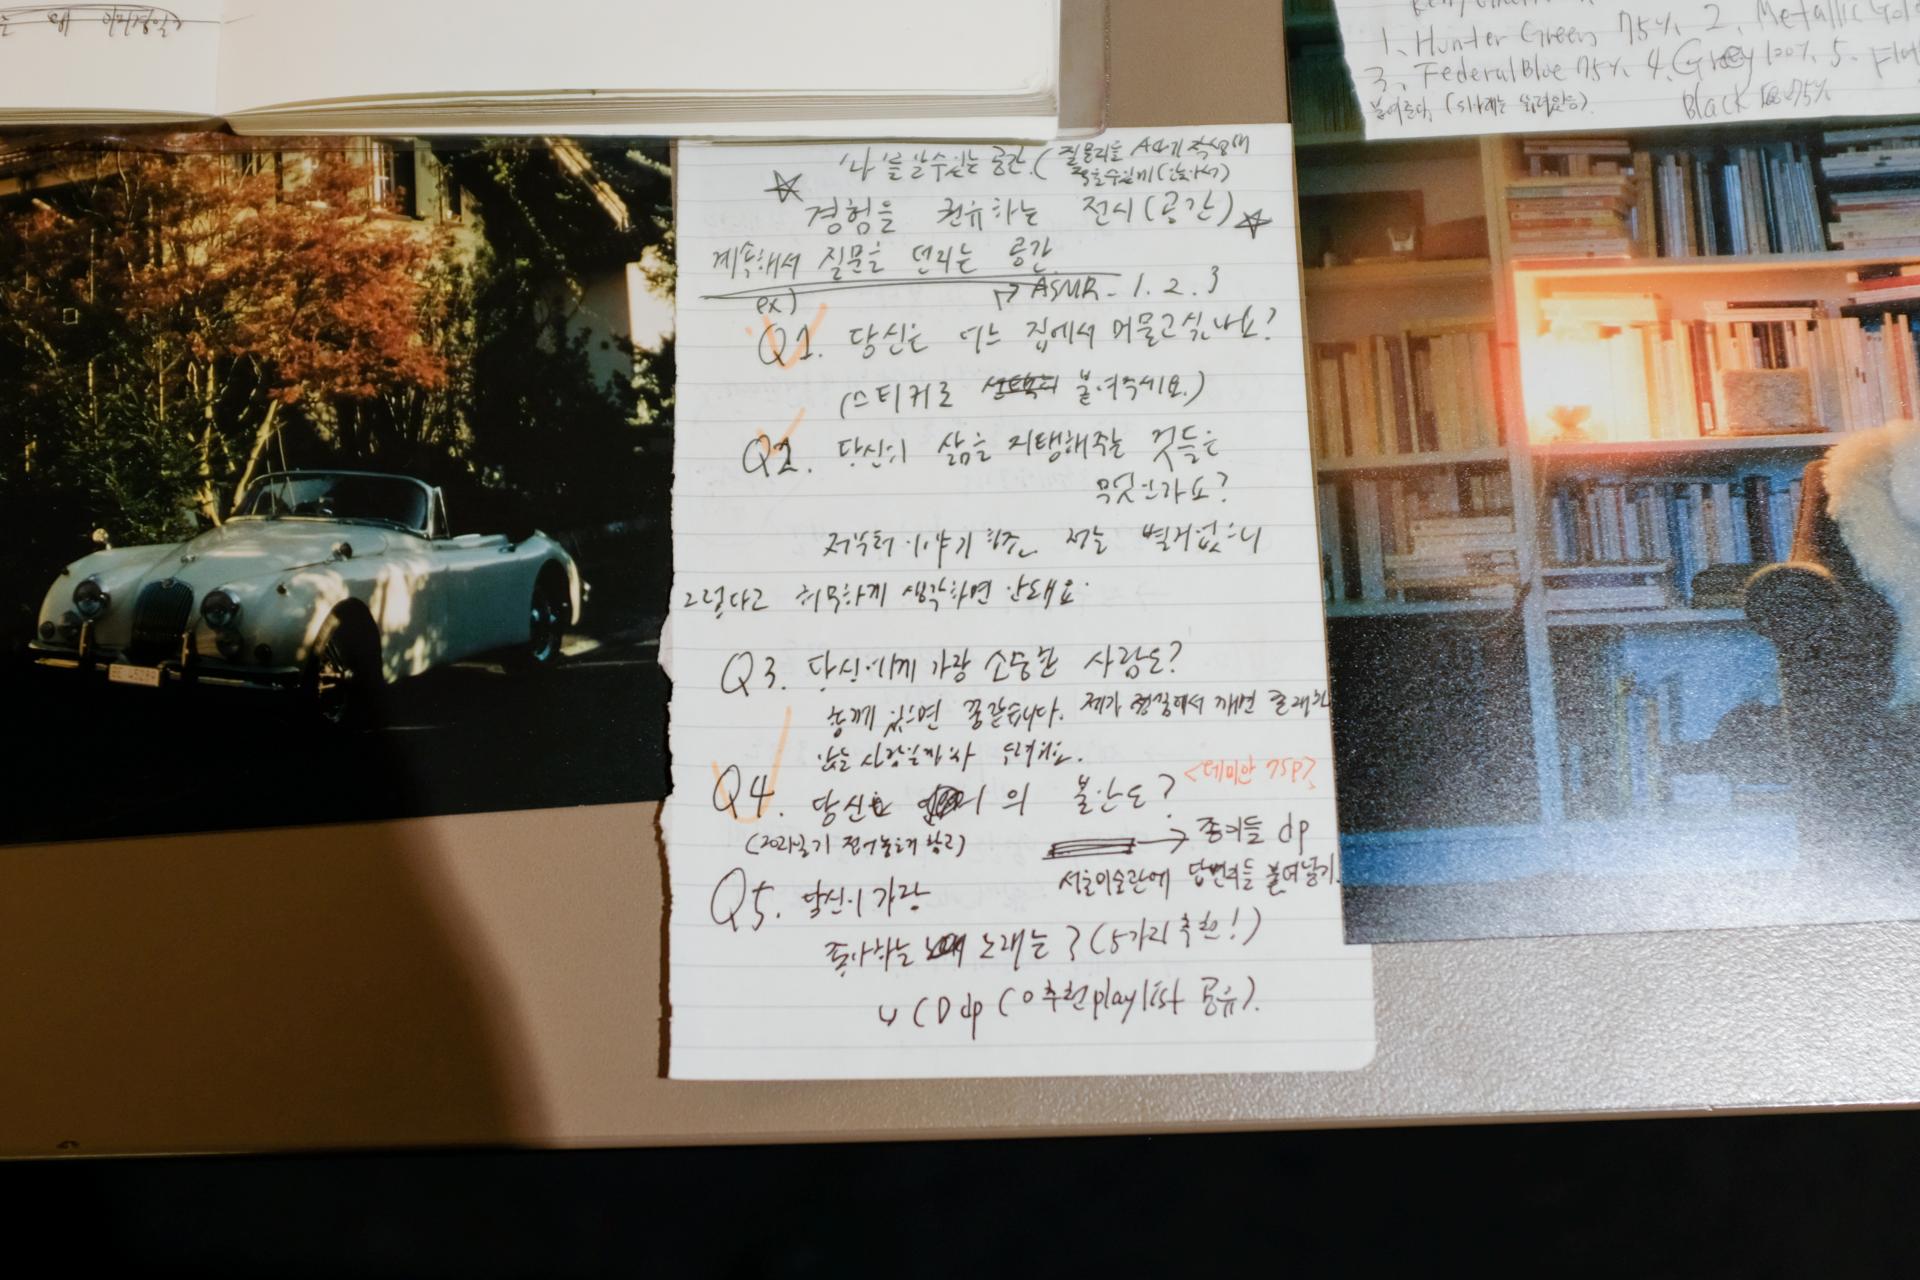 1. Hunter Green 75%. 2. Metallic Gol
3. Federal Blue 75% 4. Grey 100%. 5.
Black 75%
'나'를 알 수 있는 공간. (질문지를 A4에 작성해
경험을 권유하는 전시(공간)
계속해서 질문을 던지는 공간
ex)
→ ASMR - 1. 2. 3
Q1. 당신은 어느 집에서 머물고싶나요?
(스티커로 붙여주세요.)
Q2. 당신의 삶을 지탱해주는 것들은
무엇인가요?
저부터 이야기 하죠. 저는 별거없으니
그렇다고 허무하게 생각하면 안돼요.
Q3. 당신에게 가장 소중한 사람은?
함께 있으면 꿈같습니다. 제가 현실에서 깨면
않는 사람일까봐 두려워요.
<데미안 75P>
Q4. 당신 의 불안은?
→ 종이들 dp
서울미술관에 답변지들 붙여놓기.
Q5. 당신이 가장
좋아하는 노래는? (5가지 추천!)
CD dp (추천 playlist 공유).